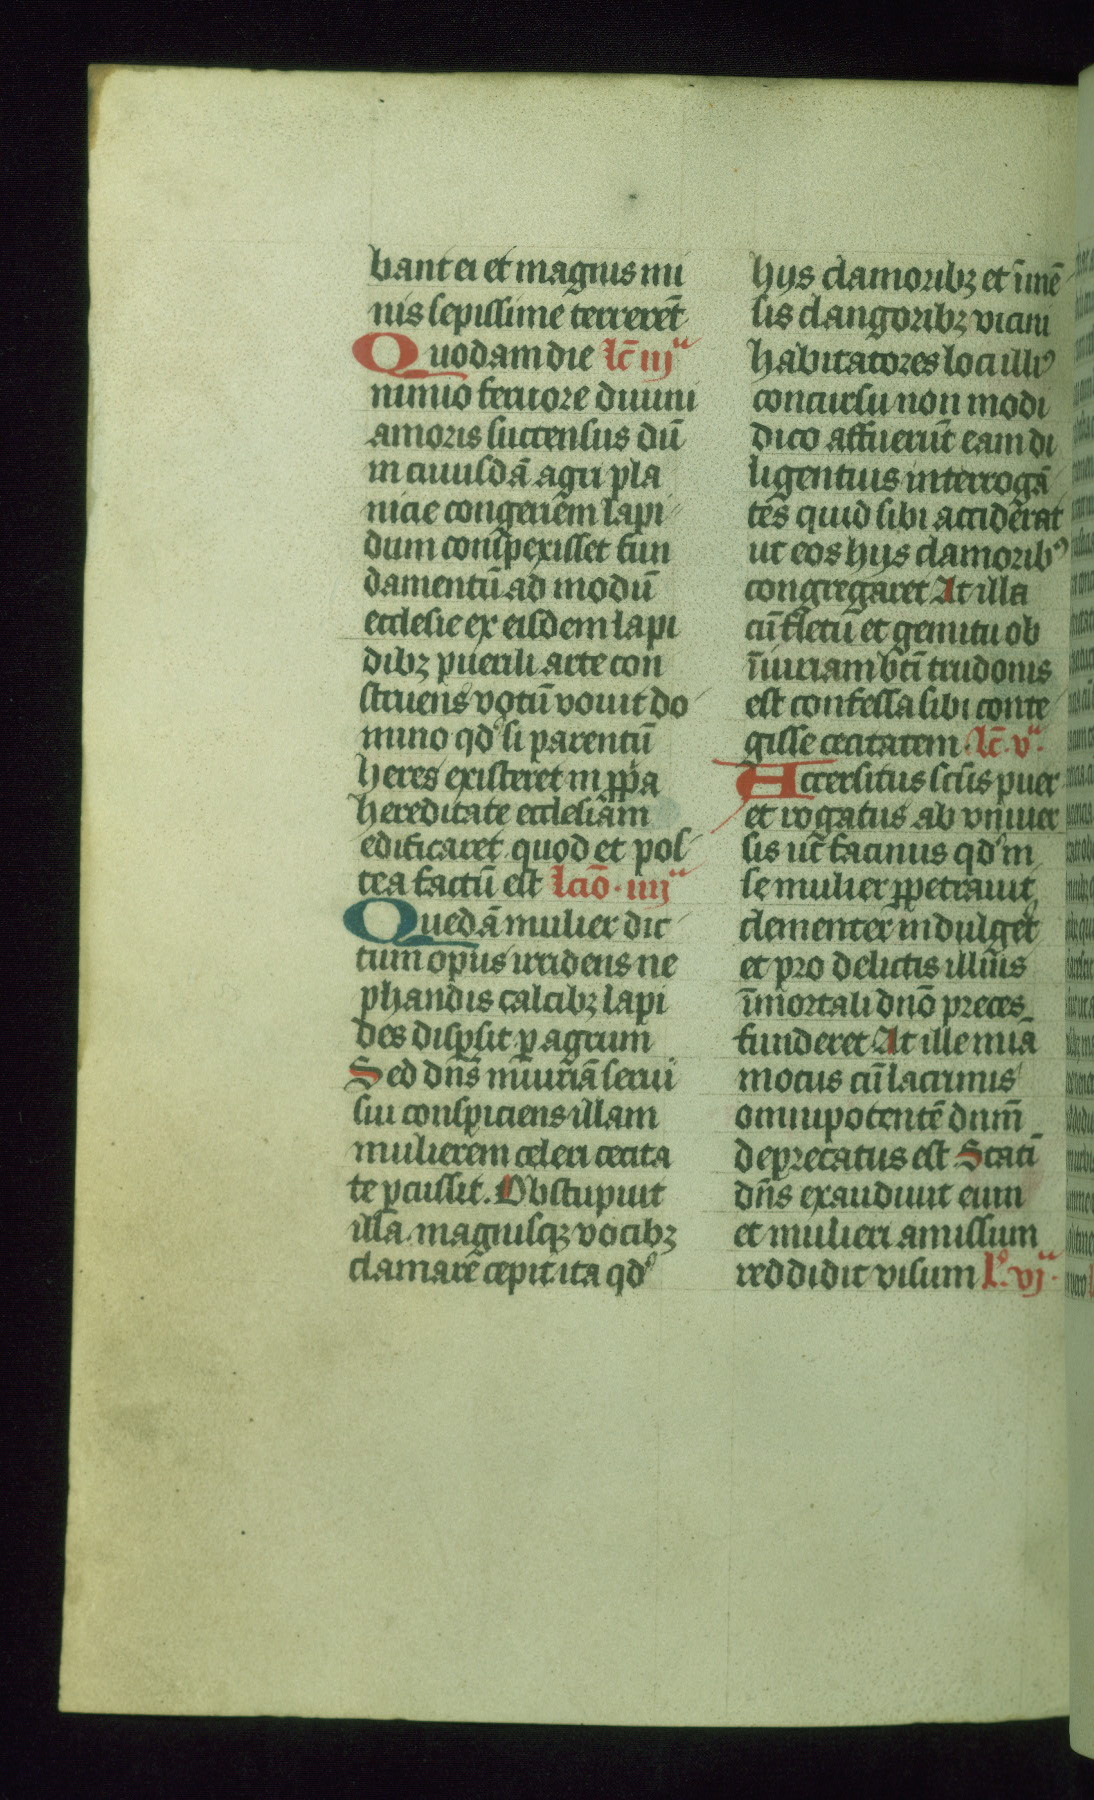 bant ei et magnis mi
nis sepissime terrerēt
Quodam die lc̄ iijᵃ
nimio feruore diuini
amoris succensus dū
in cuiusdā agri pla
nicie congeriem lapi
dum conspexisset fun
damentū ad modū
ecclesie ex eisdem lapi
dibꝫ puerili arte con
struens votū vouit do
mino qd' si parentū
heres existeret in ꝓp̄a
hereditate ecclesiam
edificaret. quod et pos
tea factū est lcıō. iiijᵃ
Quedā mulier dic
tum opus irridens ne
phandis calcibꝫ lapi
des dispsit ꝑ agrum
Sed dn̄s iniuriā serui
sui conspiciens illam
mulierem celeri cecita
te ꝑcussit. Obstupuit
illa. magnisqꝫ vocibꝫ
clamare cepit. ita qd'
hys clamoribꝫ et īmē
sis clangoribꝫ vicini
habitatores loci illiꝰ
concursu non modi
dico affuerūt eam di
ligentius interrogā
tes quid sibi acciderat
ut eos hys clamoribꝰ
congregaret At illa
cū fletu et gemitu ob
īiuriam bt̄i trudonis
est confessa sibi conte
gisse cecitatem. lc̄. vᵃ.
Accersitus scl̄is puer
et rogatus ab vniuer
sis ut facinus qd' in
se mulier ꝑpetrauit
clementer indulgeret
et pro delictis illius
īmortali dn̄o preces
funderet At ille mīa
motus cū lacrimis
omnipotentē dnm̄
deprecatus est Stati
dn̄s exaudiuit eum
et mulieri amissum
reddidit visum lº. vjᵃ.